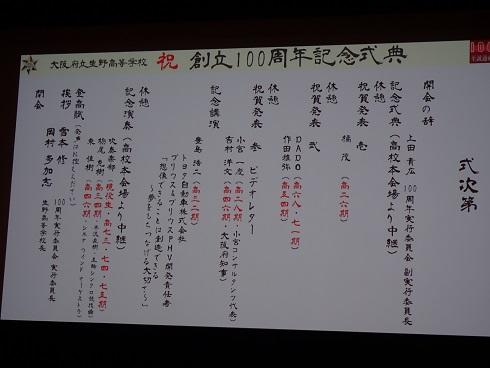 大阪府立生野高等学校 祝 創立100周年記念式典
式次第
開会の辞
上田 青広 100周年実行委員会 副実行委員長
記念式典(高校本会場より中継)
休憩
祝賀発表 壱
橘 茂(高二六期)
休憩
祝賀発表 弐
DADO(高六八・七一期)
作田雄弥(高六五期)
休憩
祝賀発表 参 ビデオレター
小宮一慶(高二八期・小宮コンサルタンツ代表)
吉村 洋文(高四六期・大阪府知事)
記念講演
豊島 浩二(高三一期)
トヨタ自動車株式会社
プリウス&プリウスPHV開発責任者
「想像できることは創造できる
~夢をもちつなげる大切さ~」
休憩
記念演奏(高校本会場より中継)
吹奏楽部(現役生・高七三・七四・七五期)
東 佳樹(高四六期・シエナ ウインド オーケストラ)
登高賦(発声はお控えください)
挨拶
雪本 修 100周年実行委員会 実行委員長
岡村 多加志 生野高等学校長
閉会